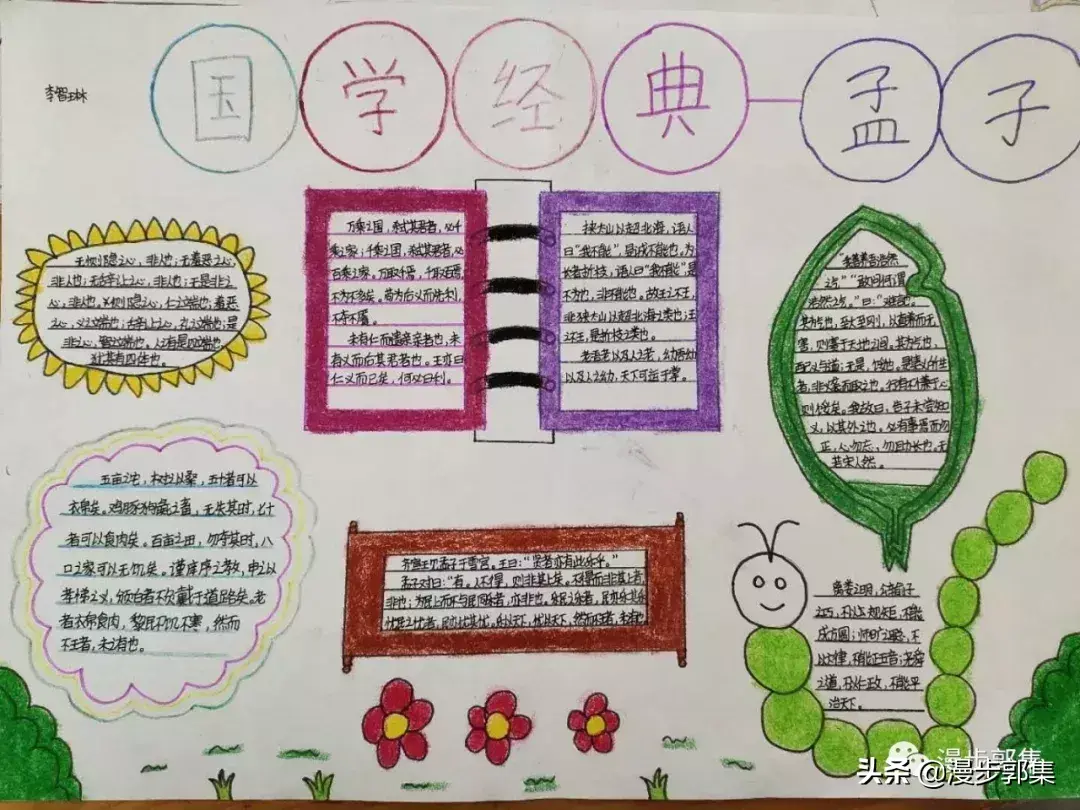 国学经典—孟子
李智玉林
无恻隐之心，非人也；无羞恶之心，
非人也；无辞让之心，非人也；无是非之
心，非人也。恻隐之心，仁之端也；羞恶
之心，义之端也；辞让之心，礼之端也；是
非之心，智之端也。人之有是四端也，
犹其有四体也。
万乘之国，弑其君者，必千
乘之家；千乘之国，弑其君者，必
百乘之家。万取千焉，千取百焉，
不为不多矣。苟为后义而先利，
不夺不餍。
未有仁而遗其亲者也，未
有义而后其君者也。王亦曰
仁义而已矣，何必曰利。
挟太山以超北海，语人
曰“我不能”，是诚不能也。为
长者折枝，语人曰“我不能”，是
不为也，非不能也。故王之不王，
非挟太山以超北海之类也；王
之不王，是折枝之类也。
老吾老以及人之老，幼吾幼
以及人之幼，天下可运于掌。
我善养吾浩然
之气。”“敢问何谓
浩然之气。”曰：“难言也。
其为气也，至大至刚，以直养而无
害，则塞于天地之间。其为气也，
配义与道；无是，馁也。是集义所生
者，非义袭而取之也。行有不慊于心，
则馁矣。我故曰，告子未尝知
义，以其外之也。必有事焉而勿
正，心勿忘，勿助长也。无
若宋人然。
五亩之宅，树之以桑，五十者可以
衣帛矣。鸡豚狗彘之畜，无失其时，七十
者可以食肉矣。百亩之田，勿夺其时，八
口之家可以无饥矣。谨庠序之教，申之以
孝悌之义，颁白者不负戴于道路矣。老
者衣帛食肉，黎民不饥不寒，然而
不王者，未之有也。
齐宣王见孟子于雪宫。王曰：“贤者亦有此乐乎。”
孟子对曰：“有。人不得，则非其上矣。不得而非其上者，
非也；为民上而不与民同乐者，亦非也。乐民之乐者，民亦乐其乐；
忧民之忧者，民亦忧其忧。乐以天下，忧以天下，然而不王者，未之有
离娄之明，公输子
之巧，不以规矩，不能
成方圆；师旷之聪，不
以六律，不能正五音；尧舜
之道，不以仁政，不能平
治天下。
漫步郭集
头条 @漫步郭集